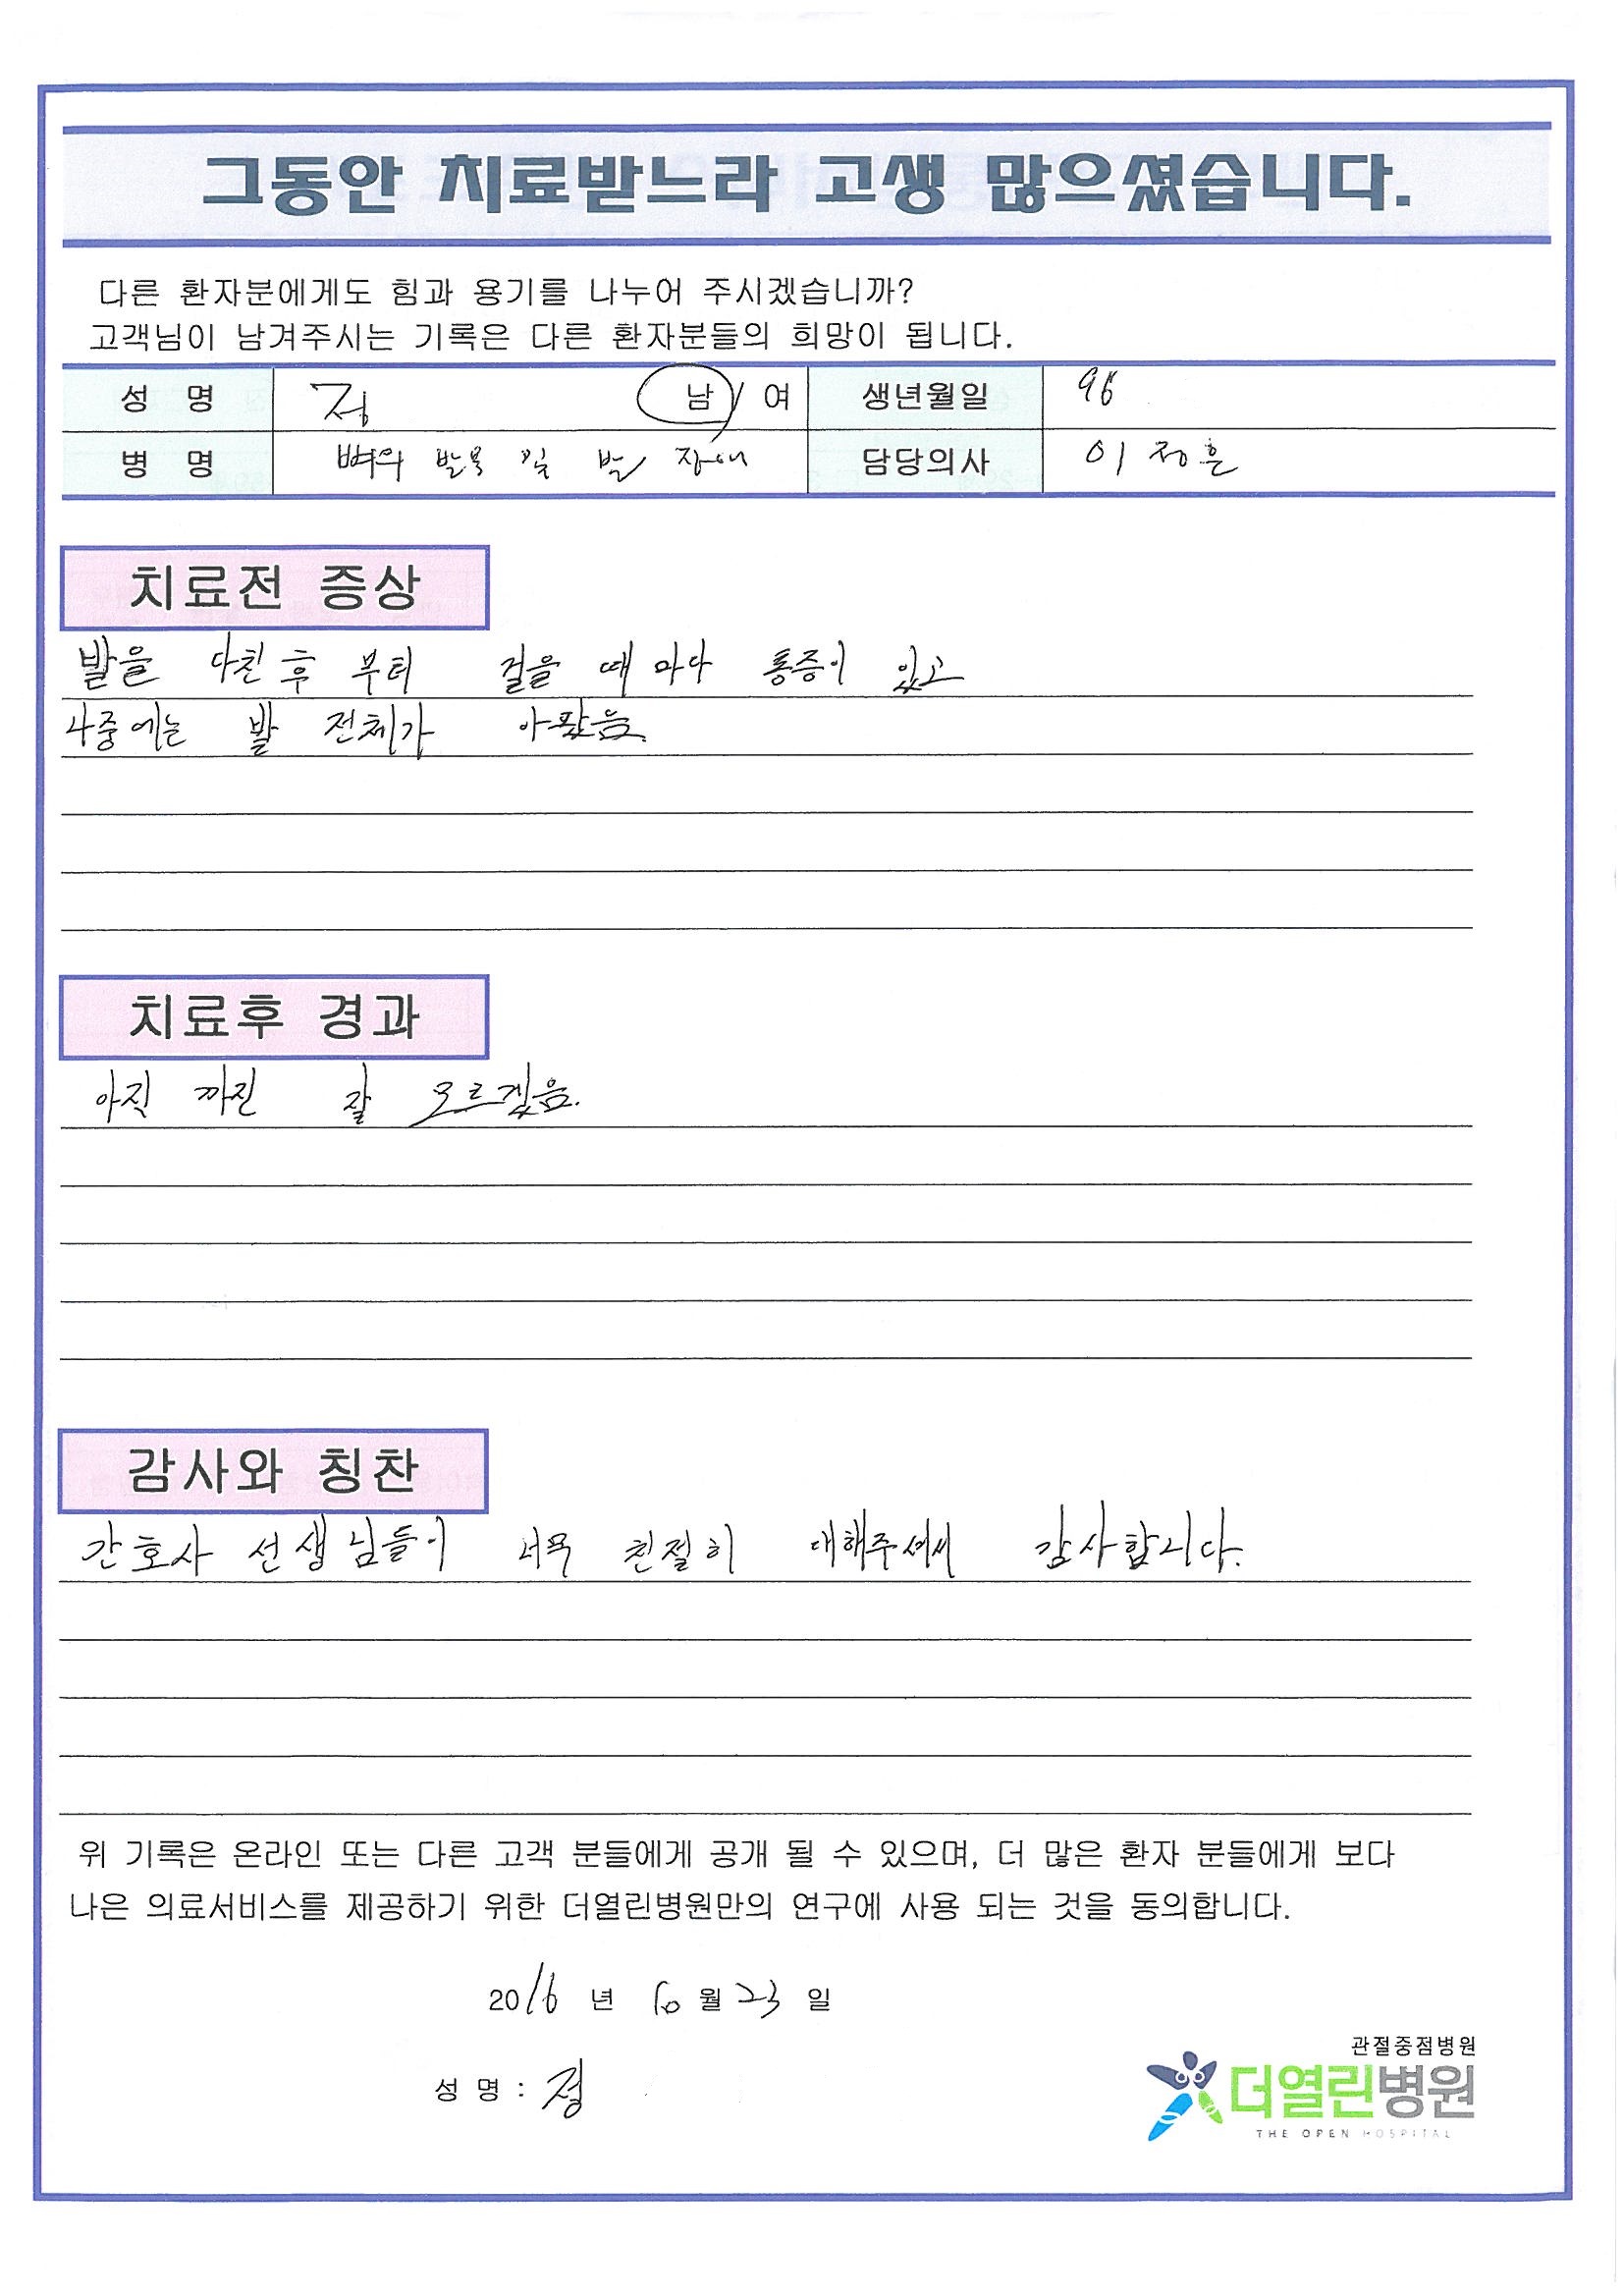 그동안 치료받느라 고생 많으셨습니다.
다른 환자분에게도 힘과 용기를 나누어 주시겠습니까?
고객님이 남겨주시는 기록은 다른 환자분들의 희망이 됩니다.
성 명 정 남/여 생년월일 96
병 명 뼈의 발목 및 발 장애 담당의사 이정훈
치료전 증상
발을 다친 후 부터 걸을 때 마다 통증이 있고
나중에는 발 전체가 아팠음.
치료후 경과
아직 까진 잘 모르겠음.
감사와 칭찬
간호사 선생님들이 너무 친절히 대해주셔서 감사합니다.
위 기록은 온라인 또는 다른 고객 분들에게 공개 될 수 있으며, 더 많은 환자 분들에게 보다
나은 의료서비스를 제공하기 위한 더열린병원만의 연구에 사용 되는 것을 동의합니다.
2016 년 10 월 23 일
관절중점병원
성 명 : 정
더열린병원
THE OPEN HOSPITAL